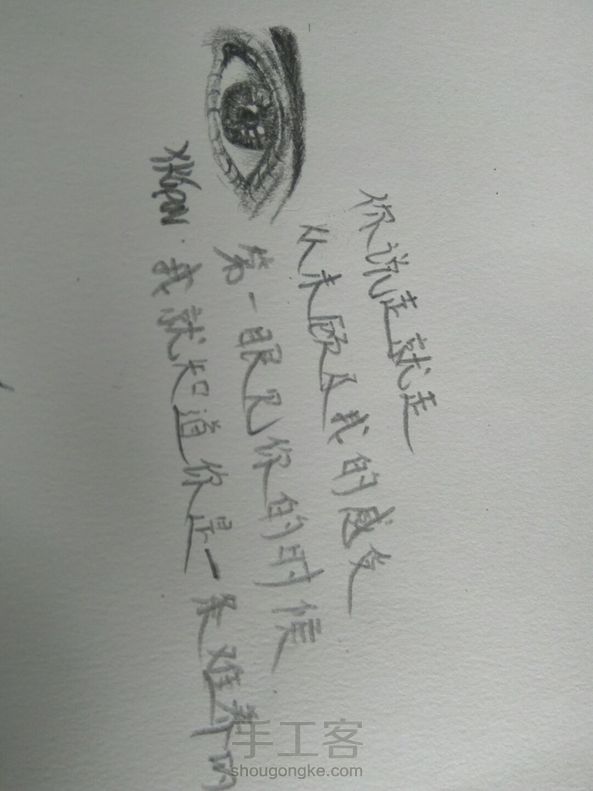 你说走就走
从未顾及我的感受
第一眼见你的时候
我就知道你是一条难养的
手工客
shougongke.com